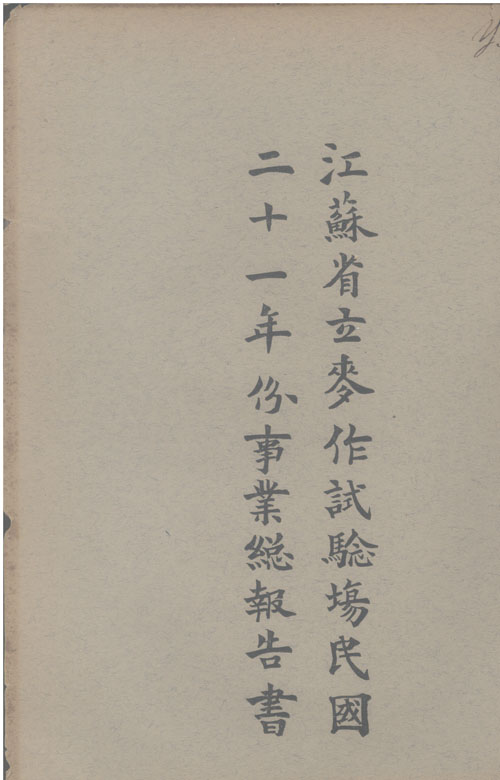 江蘇省立麥作試騐塲民國
二十一年份事業總報告書